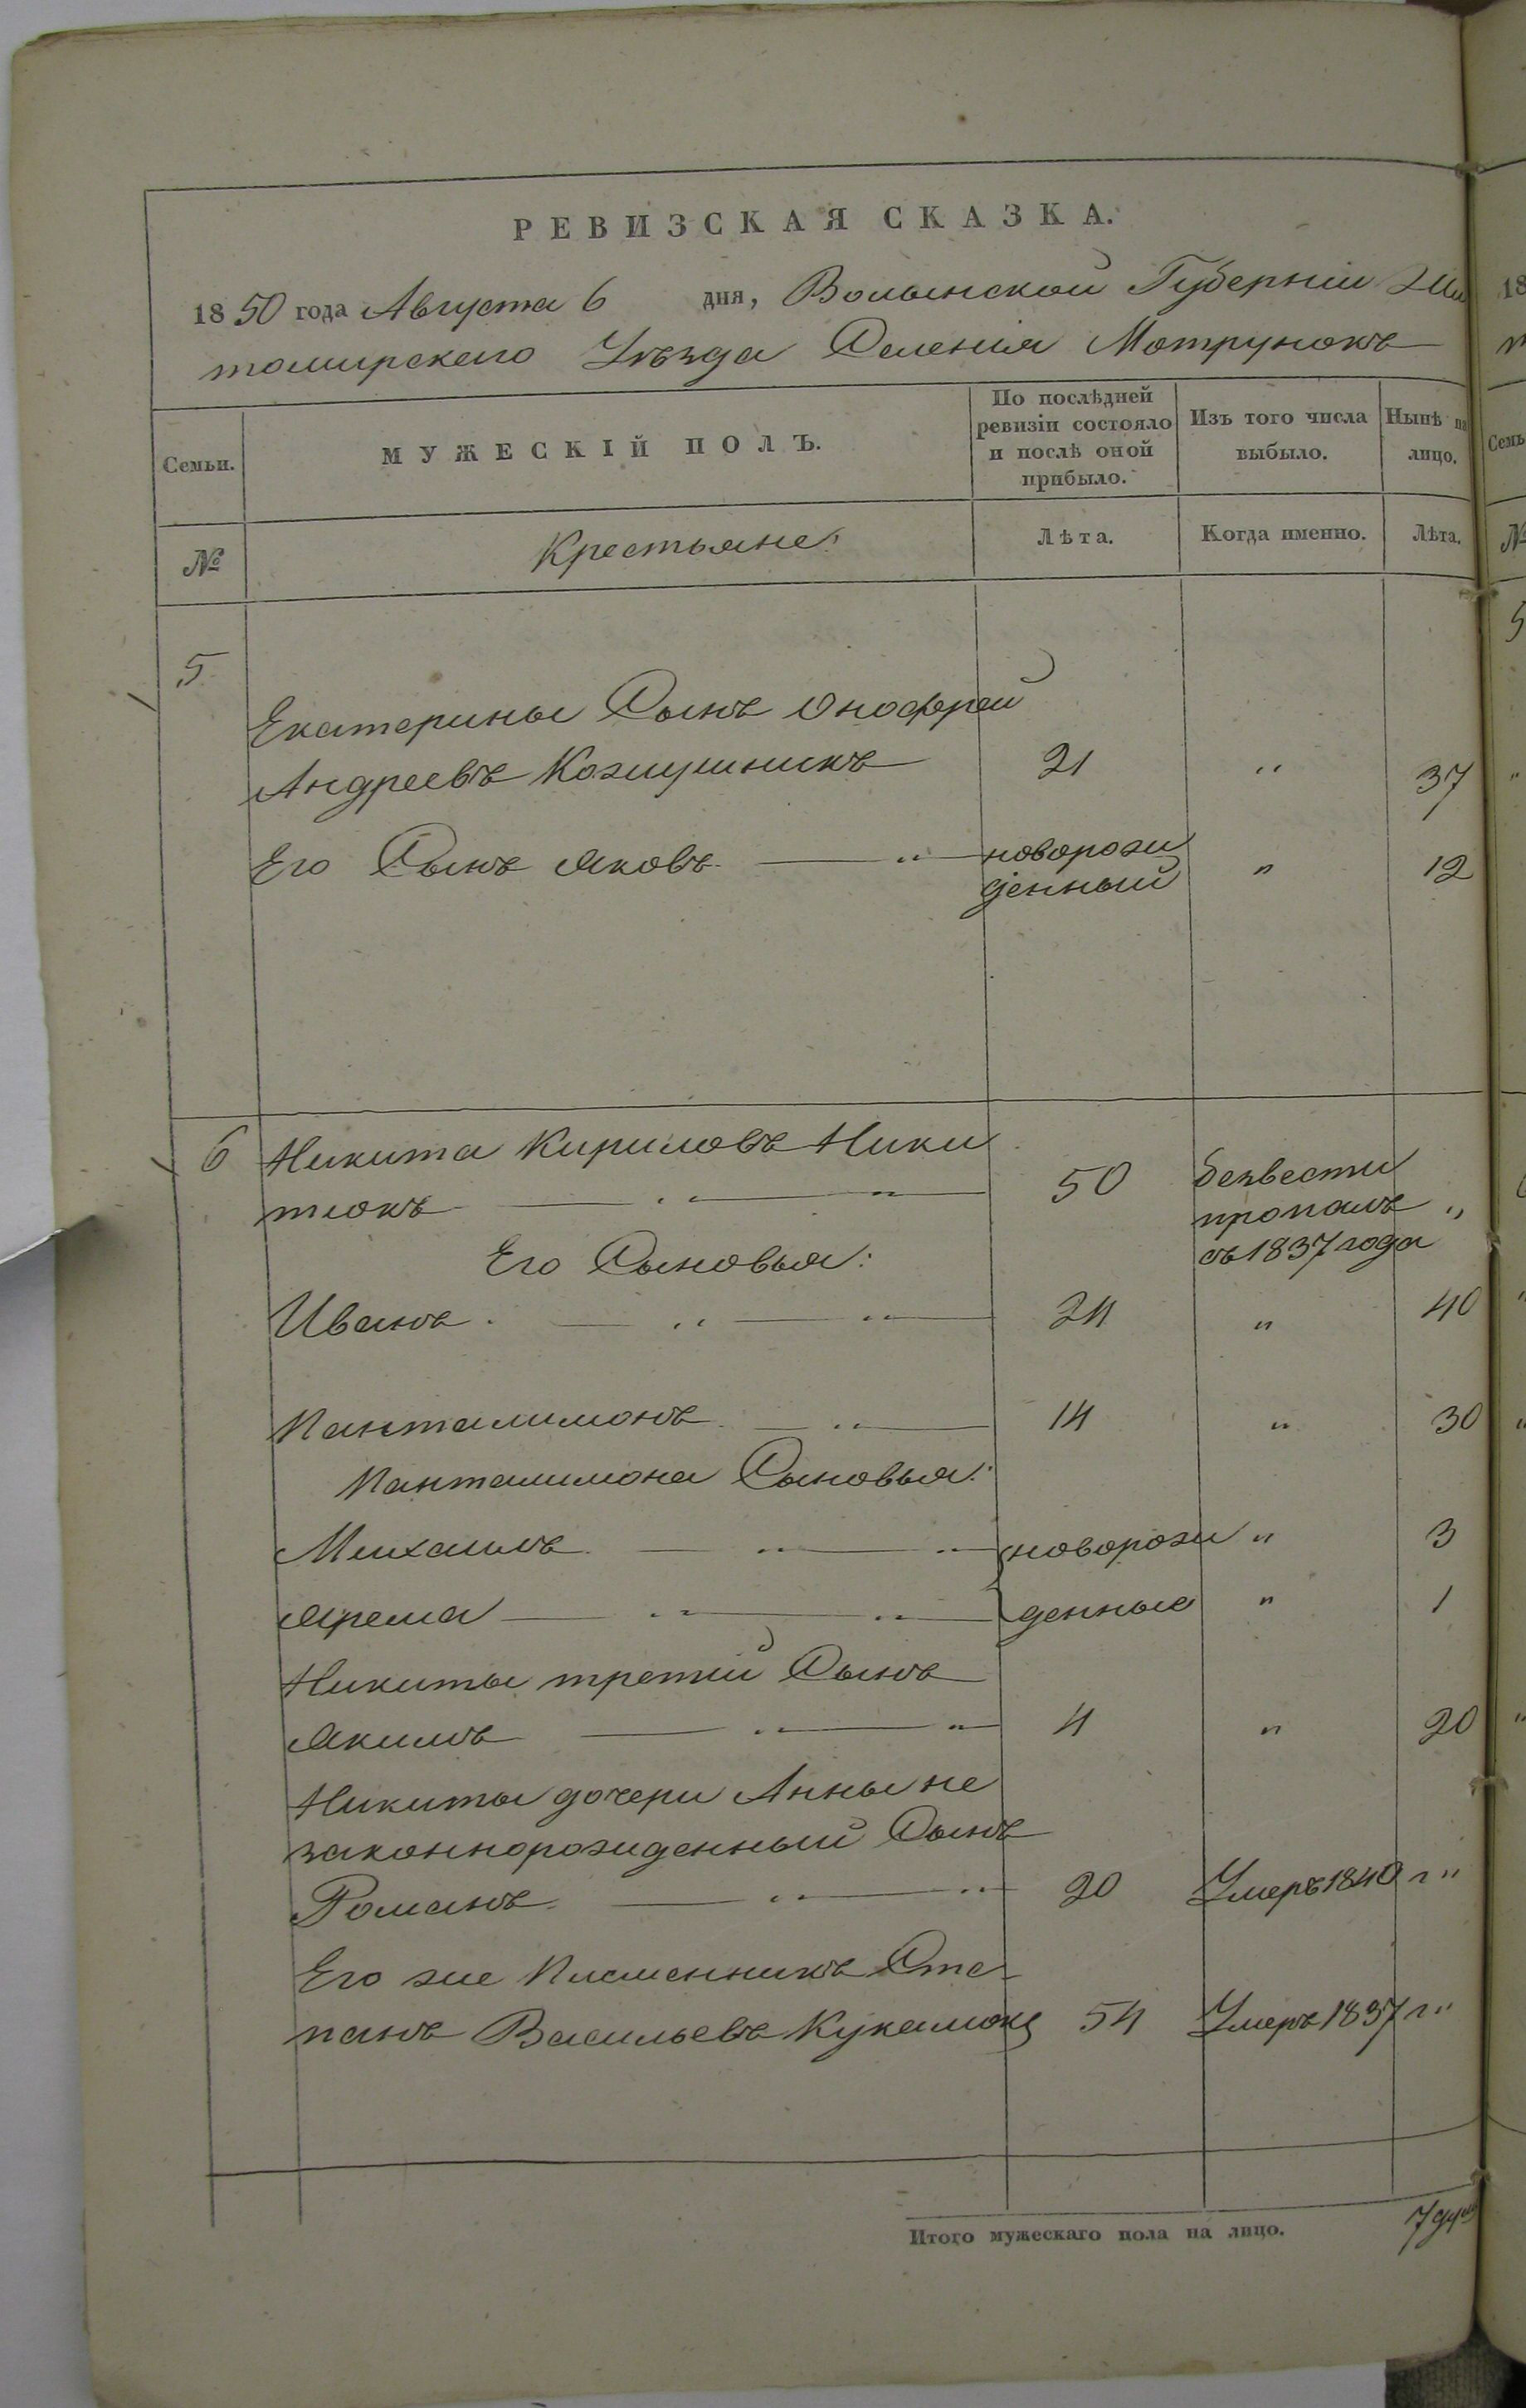 РЕВИЗСКАЯ СКАЗКА.
1850 года Августа 6 дня, Волынской Губерніи Жи
томирскаго Уѣзда Селенія Мотрунокъ
Семьи.
МУЖЕСКІЙ ПОЛЪ.
По послѣдней ревизіи состояло и послѣ оной прибыло.
Изъ того числа выбыло.
Нынѣ на лицо.
№ Крестьяне: Лѣта. Когда именно. Лѣта.
5
Екатерины Сынъ Онофрей
Андреевъ Кожушникъ 21 " 37
Его Сынъ Яковъ " новорож
денный " 12
6 Никита Кириловъ Ники
тюкъ " " 50 безвести
пропалъ "
съ 1837 года
Его Сыновья:
Иванъ " " 24 " 40
Панталимонъ " 14 " 30
Панталимона Сыновья:
Михаилъ " " новорож " 3
Ярема " " денные " 1
Никиты третій Сынъ
Якимъ " " 4 " 20
Никиты дочери Анны не
законнорожденный Сынъ
Романъ " " 20 Умеръ 1840 г "
Его же Племенникъ Сте-
панъ Васильевъ 54 Умеръ 1837 г "
Итого мужескаго пола на лицо. 7 душ
18
Семь
№
5